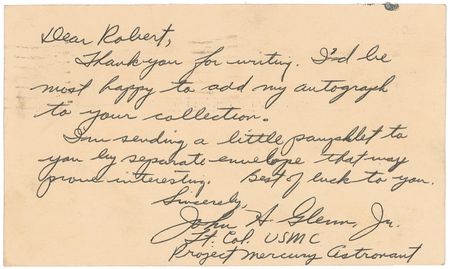 Dear Robert,
Thank you for writing. I'd be
most happy to add my autograph
to your collection.
I'm sending a little pamphlet to
you by separate envelope that may
prove interesting. Best of luck to you.
Sincerely,
John H. Glenn, Jr.
Lt. Col. USMC
Project Mercury Astronaut